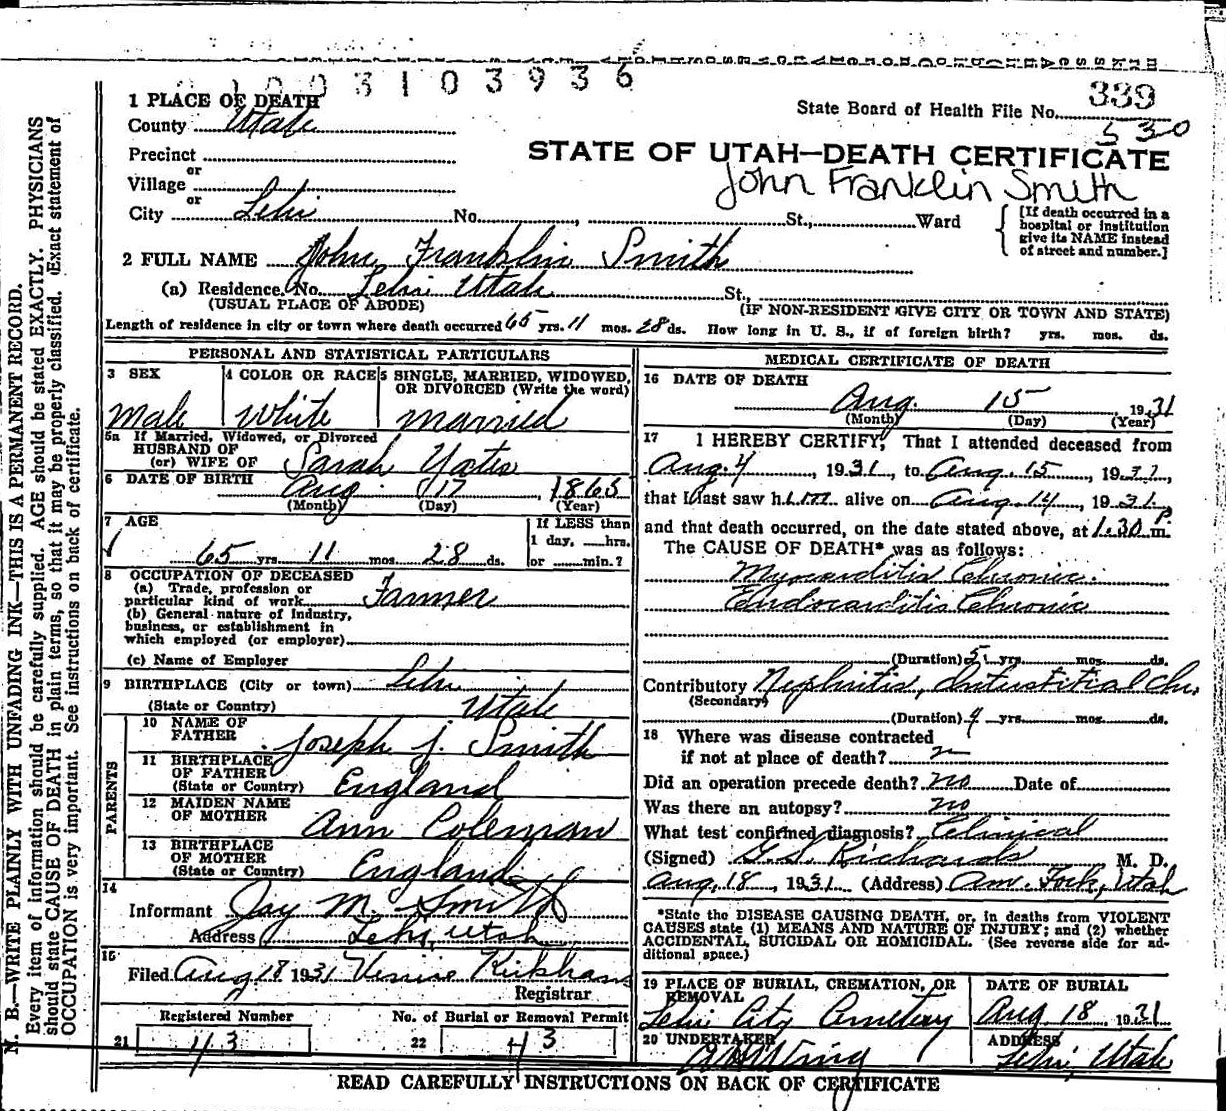 3103936
1 PLACE OF DEATH
State Board of Health File No. 339
530
County Utah
STATE OF UTAH—DEATH CERTIFICATE
Precinct
or
John Franklin Smith
Village
or
City Lehi No. , St., Ward
[If death occurred in a
hospital or institution
give its NAME instead
of street and number.]
2 FULL NAME John Franklin Smith
(a) Residence. No. Lehi Utah St.,
(USUAL PLACE OF ABODE) (IF NON-RESIDENT GIVE CITY OR TOWN AND STATE)
Length of residence in city or town where death occurred 65 yrs. 11 mos. 28 ds. How long in U. S., if of foreign birth? yrs. mos. ds.
PERSONAL AND STATISTICAL PARTICULARS
3 SEX
Male
4 COLOR OR RACE
White
5 SINGLE, MARRIED, WIDOWED,
OR DIVORCED (Write the word)
Married
5a If Married, Widowed, or Divorced
HUSBAND OF
(or) WIFE OF Sarah Yates
6 DATE OF BIRTH Aug. 17, 1865
(Month) (Day) (Year)
7 AGE
65 yrs. 11 mos. 28 ds.
If LESS than
1 day, hrs.
or min.?
8 OCCUPATION OF DECEASED
(a) Trade, profession or
particular kind of work Farmer
(b) General nature of Industry,
business, or establishment in
which employed (or employer)
(c) Name of Employer
9 BIRTHPLACE (City or town) Lehi
(State or Country) Utah
PARENTS
10 NAME OF
FATHER Joseph J. Smith
11 BIRTHPLACE
OF FATHER
(State or Country) England
12 MAIDEN NAME
OF MOTHER Ann Coleman
13 BIRTHPLACE
OF MOTHER
(State or Country) England
14
Informant Jay M. Smith
Address Lehi, Utah
15
Filed Aug 18 1931
Registrar
Registered Number
21 43
No. of Burial or Removal Permit
22 43
MEDICAL CERTIFICATE OF DEATH
16 DATE OF DEATH
Aug. 15, 1931
(Month) (Day) (Year)
17 I HEREBY CERTIFY, That I attended deceased from
Aug. 4, 1931. to Aug. 15, 1931,
that I last saw him alive on Aug. 14, 1931.
and that death occurred, on the date stated above, at 1.30 P.m.
The CAUSE OF DEATH* was as follows:
Myocarditis Chronic.
Endocarditis Chronic
(Duration) 5 yrs. mos. ds.
Contributory Nephritis, Interstitial Chr.
(Secondary)
(Duration) 4 yrs. mos. ds.
18 Where was disease contracted
if not at place of death?
Did an operation precede death? no Date of
Was there an autopsy? no
What test confirmed diagnosis? Clinical
(Signed) G. S. Richards M. D.
Aug. 18, 1931 (Address) Am. Fork, Utah
*State the DISEASE CAUSING DEATH, or, in deaths from VIOLENT
CAUSES state (1) MEANS AND NATURE OF INJURY; and (2) whether
ACCIDENTAL, SUICIDAL OR HOMICIDAL. (See reverse side for ad-
ditional space.)
19 PLACE OF BURIAL, CREMATION, OR
REMOVAL
Lehi City Cemetery
DATE OF BURIAL
Aug 18 1931
20 UNDERTAKER
Wing
ADDRESS
Lehi, Utah
READ CAREFULLY INSTRUCTIONS ON BACK OF CERTIFICATE
N. B.—WRITE PLAINLY WITH UNFADING INK—THIS IS A PERMANENT RECORD.
Every item of information should be carefully supplied. AGE should be stated EXACTLY. PHYSICIANS
should state CAUSE OF DEATH in plain terms, so that it may be properly classified. Exact statement of
OCCUPATION is very important. See instructions on back of certificate.